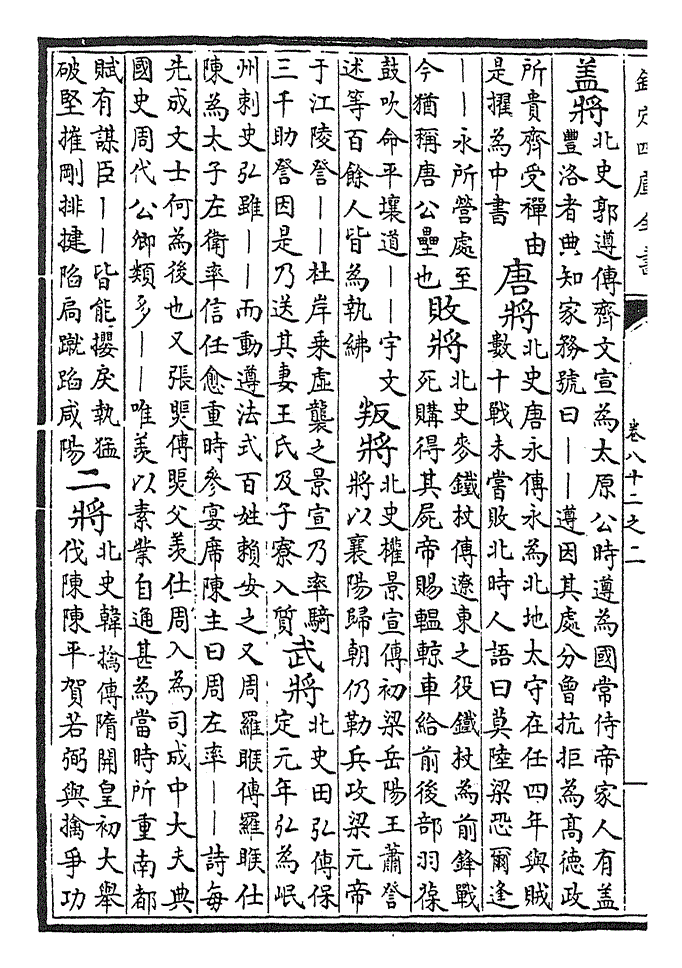 欽定四庫全書
卷八十二之二
盖將
北史郭遵傳齊文宣為太原公時遵為國常侍帝家人有盖
豐洛者典知家務號曰——遵因其處分曾抗拒為髙德政
所貴齊受禪由
是擢為中書
唐將
北史唐永傳永為北地太守在任四年與賊
數十戰未嘗敗北時人語曰莫陸梁恐爾逢
——永所營處至
今猶稱唐公壘也
敗將
北史麥鐵杖傳遼東之役鐵杖為前鋒戰
死購得其屍帝賜轀輬車給前後部羽葆
鼓吹命平壤道——宇文
述等百餘人皆為執紼
叛將
北史權景宣傳初梁岳陽王蕭詧
將以襄陽歸朝仍勒兵攻梁元帝
于江陵詧——杜岸乘虛襲之景宣乃率騎
三千助詧因是乃送其妻王氏及子寮入質
武將
北史田弘傳保
定元年弘為岷
州刺史弘雖——而動遵法式百姓賴安之又周羅睺傳羅睺仕
陳為太子左衛率信任愈重時參宴席陳主曰周左率——詩每
先成文士何為後也又張煚傳煚父羨仕周入為司成中大夫典
國史周代公卿類多——唯羨以素業自通甚為當時所重南都
賦有謀臣——皆能攫戾執猛
破堅摧剛排揵陷扃蹴蹈咸陽
二將
北史韓擒傳隋開皇初大舉
伐陳陳平賀若弼與擒爭功